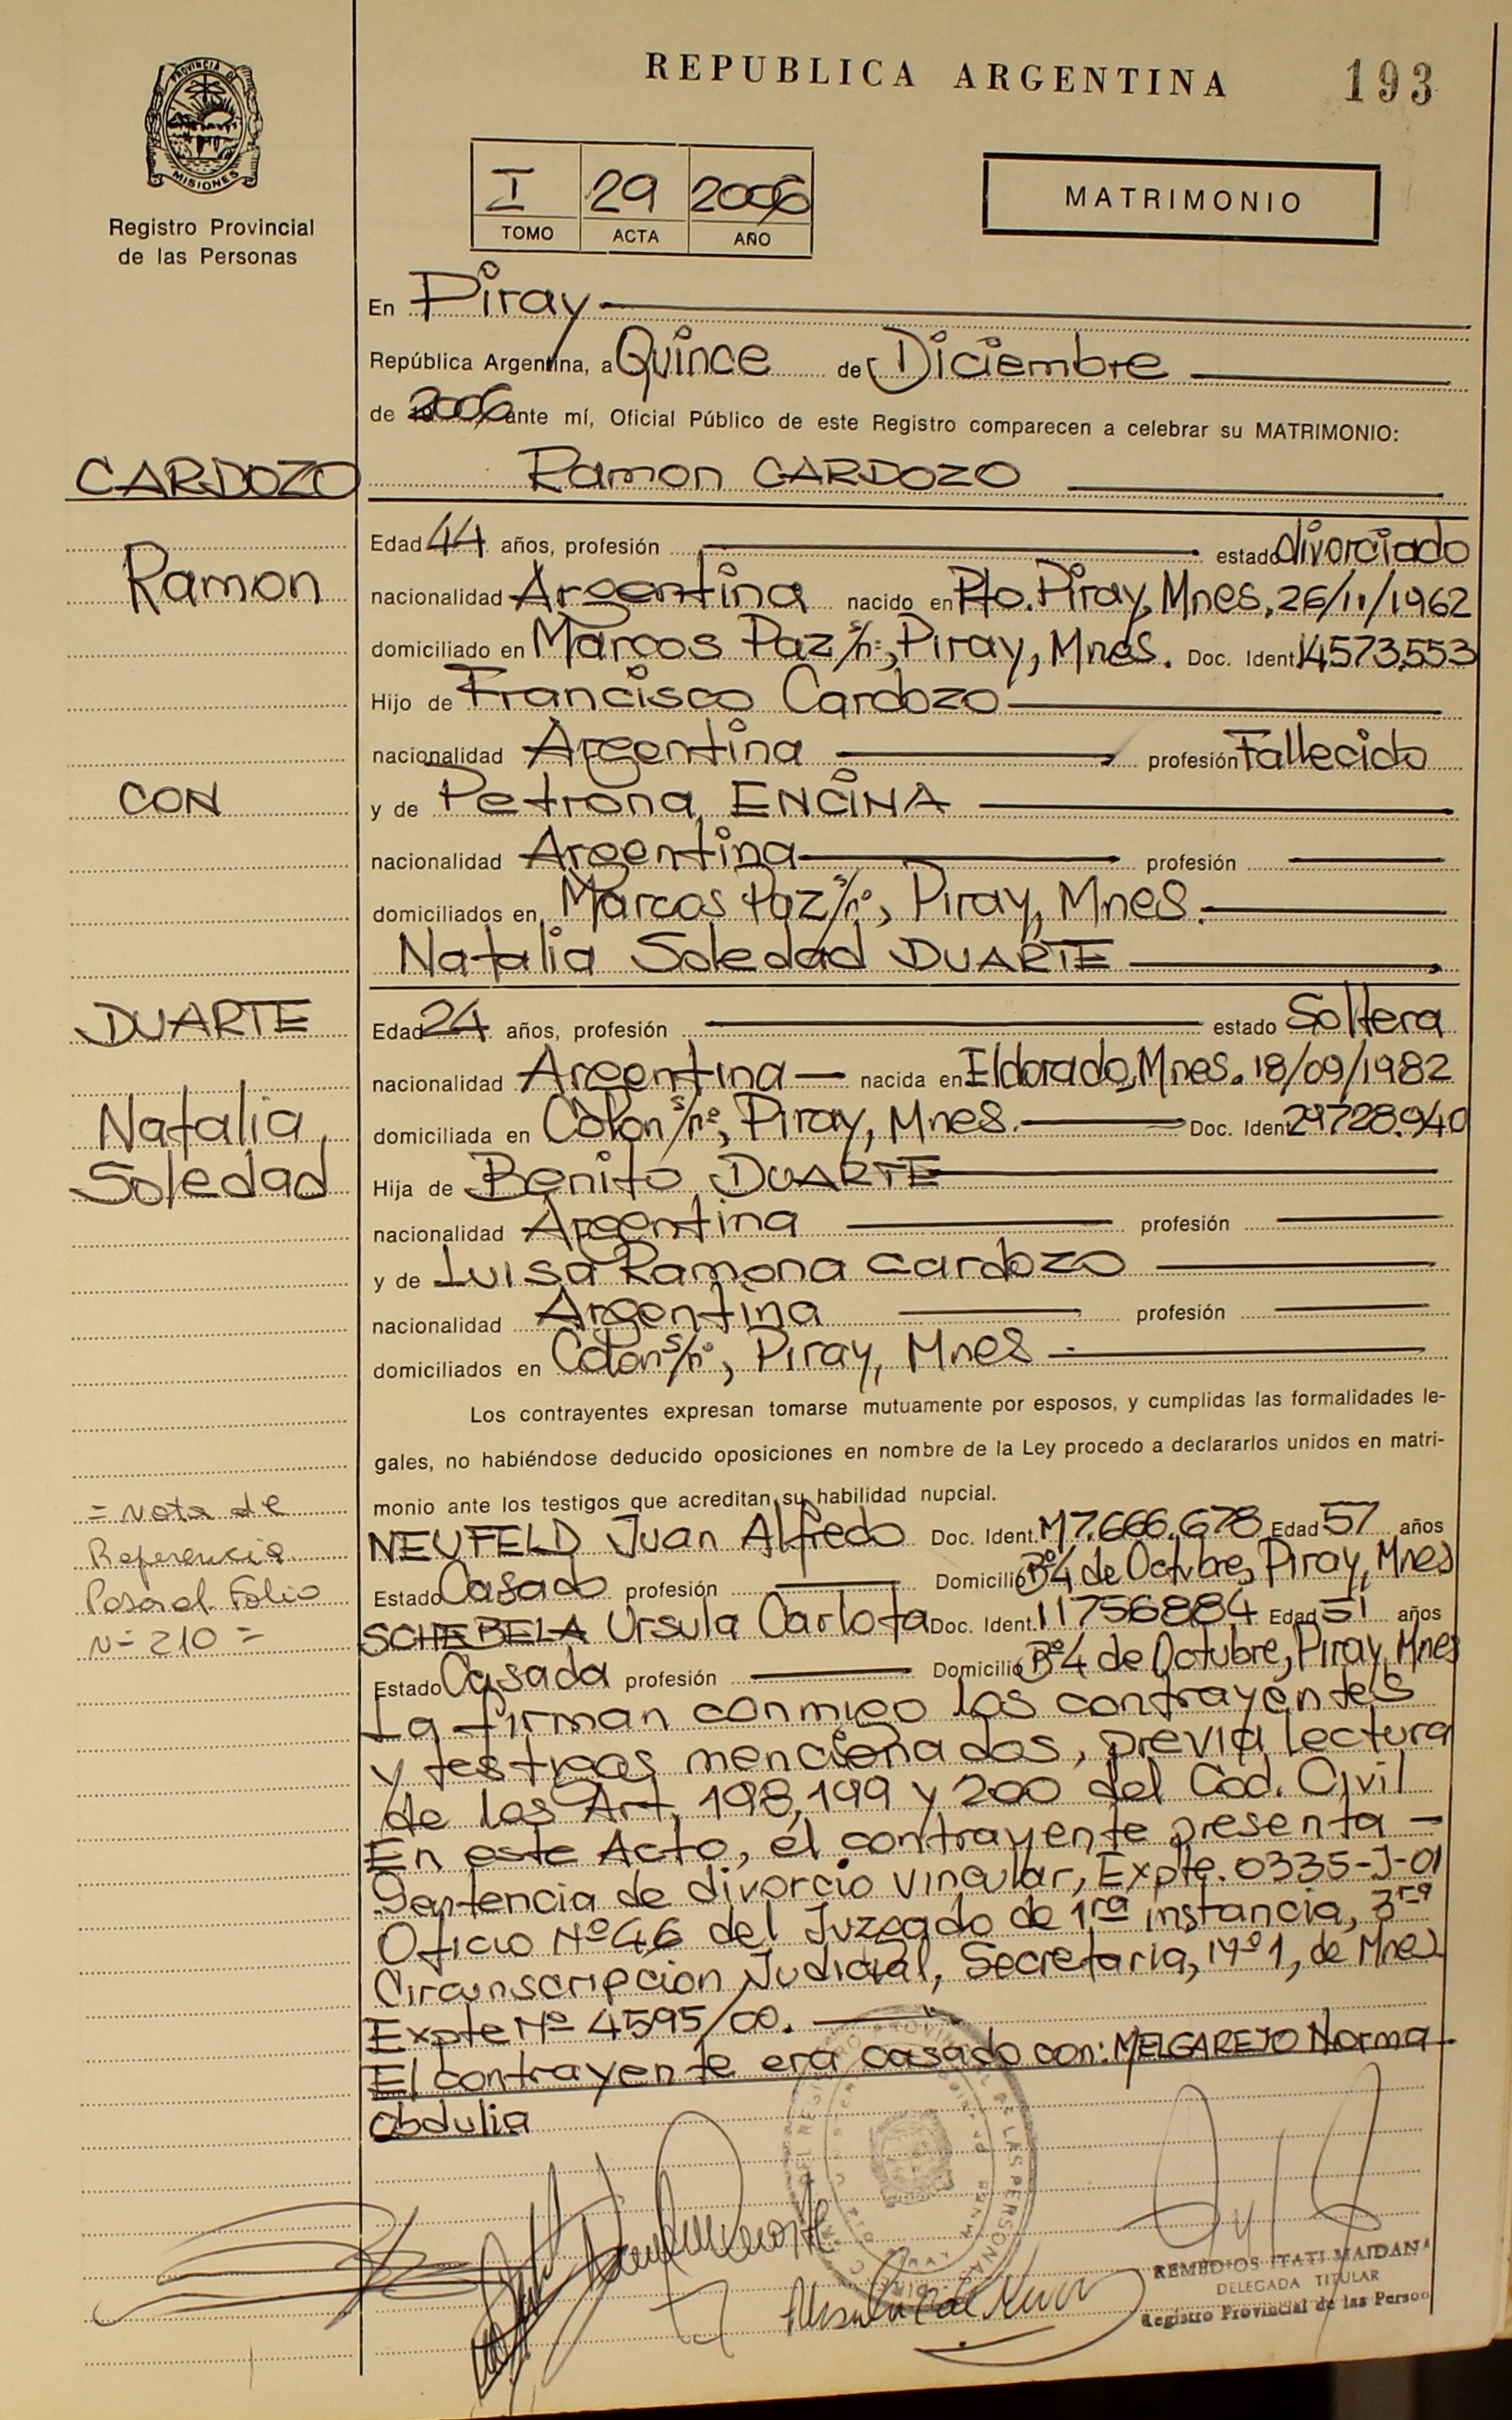 REPUBLICA ARGENTINA
193
PROVINCIA DE
MISIONES
Registro Provincial
de las Personas
I 29 2006
TOMO ACTA AÑO
MATRIMONIO
En Piray
República Argentina, a Quince de Diciembre
de 2006 ante mí, Oficial Público de este Registro comparecen a celebrar su MATRIMONIO:
CARDOZO
Ramon CARDOZO
Edad 44 años, profesión estado divorciado
Ramon
nacionalidad Argentina nacido en Pto. Piray, Mnes, 26/11/1962
domiciliado en Marcos Paz s/nº, Piray, Mnes. Doc. Ident. 14573.553
Hijo de Francisco Cardozo
nacionalidad Argentina profesión Fallecido
CON
y de Petrona ENCINA
nacionalidad Argentina profesión
domiciliados en Marcos Paz s/nº, Piray, Mnes.
Natalia Soledad DUARTE
DUARTE
Edad 24 años, profesión estado Soltera
nacionalidad Argentina nacida en Eldorado, Mnes. 18/09/1982
Natalia
domiciliada en Colon s/nº, Piray, Mnes. Doc. Ident 29728.940
Soledad
Hija de Benito DUARTE
nacionalidad Argentina profesión
y de Luisa Ramona Cardozo
nacionalidad Argentina profesión
domiciliados en Colon s/nº, Piray, Mnes
Los contrayentes expresan tomarse mutuamente por esposos, y cumplidas las formalidades le-
gales, no habiéndose deducido oposiciones en nombre de la Ley procedo a declararlos unidos en matri-
monio ante los testigos que acreditan su habilidad nupcial.
= nota de
Referencia
Pasa al Folio
Nº 210 =
NEUFELD Juan Alfredo Doc. Ident. M7.666.678 Edad 57 años
Estado Casado profesión Domicilio Bº 4 de Octubre, Piray, Mnes
SCHEBELA Ursula Carlota Doc. Ident. 11756884 Edad 51 años
Estado Casada profesión Domicilio Bº 4 de Octubre, Piray, Mnes
La firman conmigo los contrayentes
y testigos mencionados, previa lectura
de los Art. 198, 199 y 200 del Cod. Civil
En este Acto, el contrayente presenta
Sentencia de divorcio vincular, Expte. 0335-J-01
Oficio Nº 46 del Juzgado de 1ra instancia, 3ra
Circunscripcion Judicial, Secretaria, Nº 1, de Mnes
Expte Nº 4595/00.
El contrayente era casado con: MELGAREJO Norma
Obdulia
REMEDIOS ITATI MAIDANA
DELEGADA TITULAR
Registro Provincial de las Person